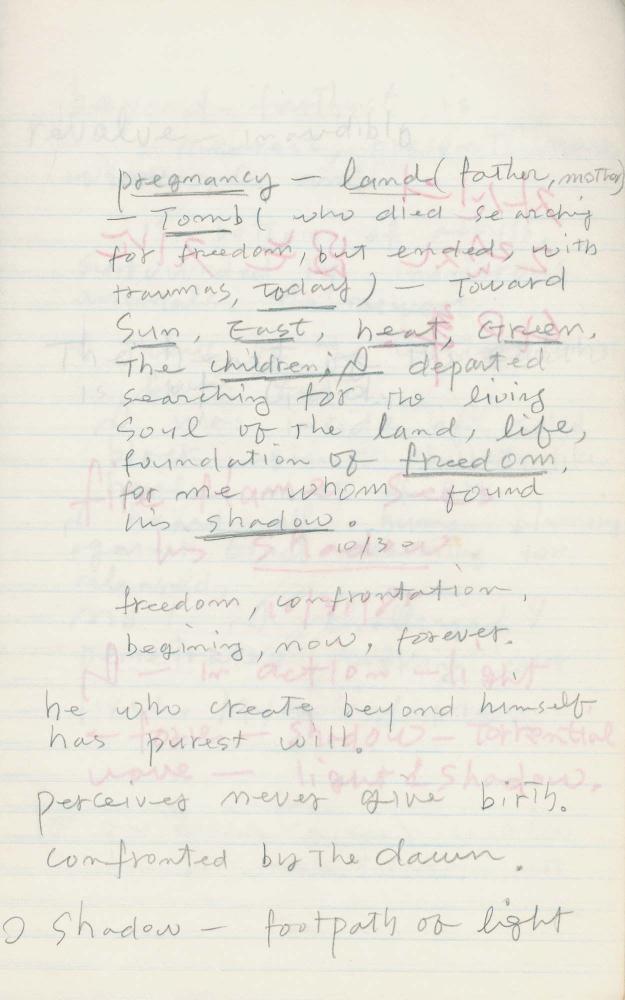 pregnancy – land (father, mother)
– Tomb ( who died searching
for freedom, but ended, with
traumas, today) – Toward
Sun, East, heat, Green.
The children, A departed
searching for the living
Soul of the land, life,
foundation of freedom,
for me whom found
his shadow.
10/30
freedom, confrontation,
begining, now, forever.
he who create beyond himself
has purest will.
perceiver never give birth.
confronted by the dawn.
shadow – footpath of light